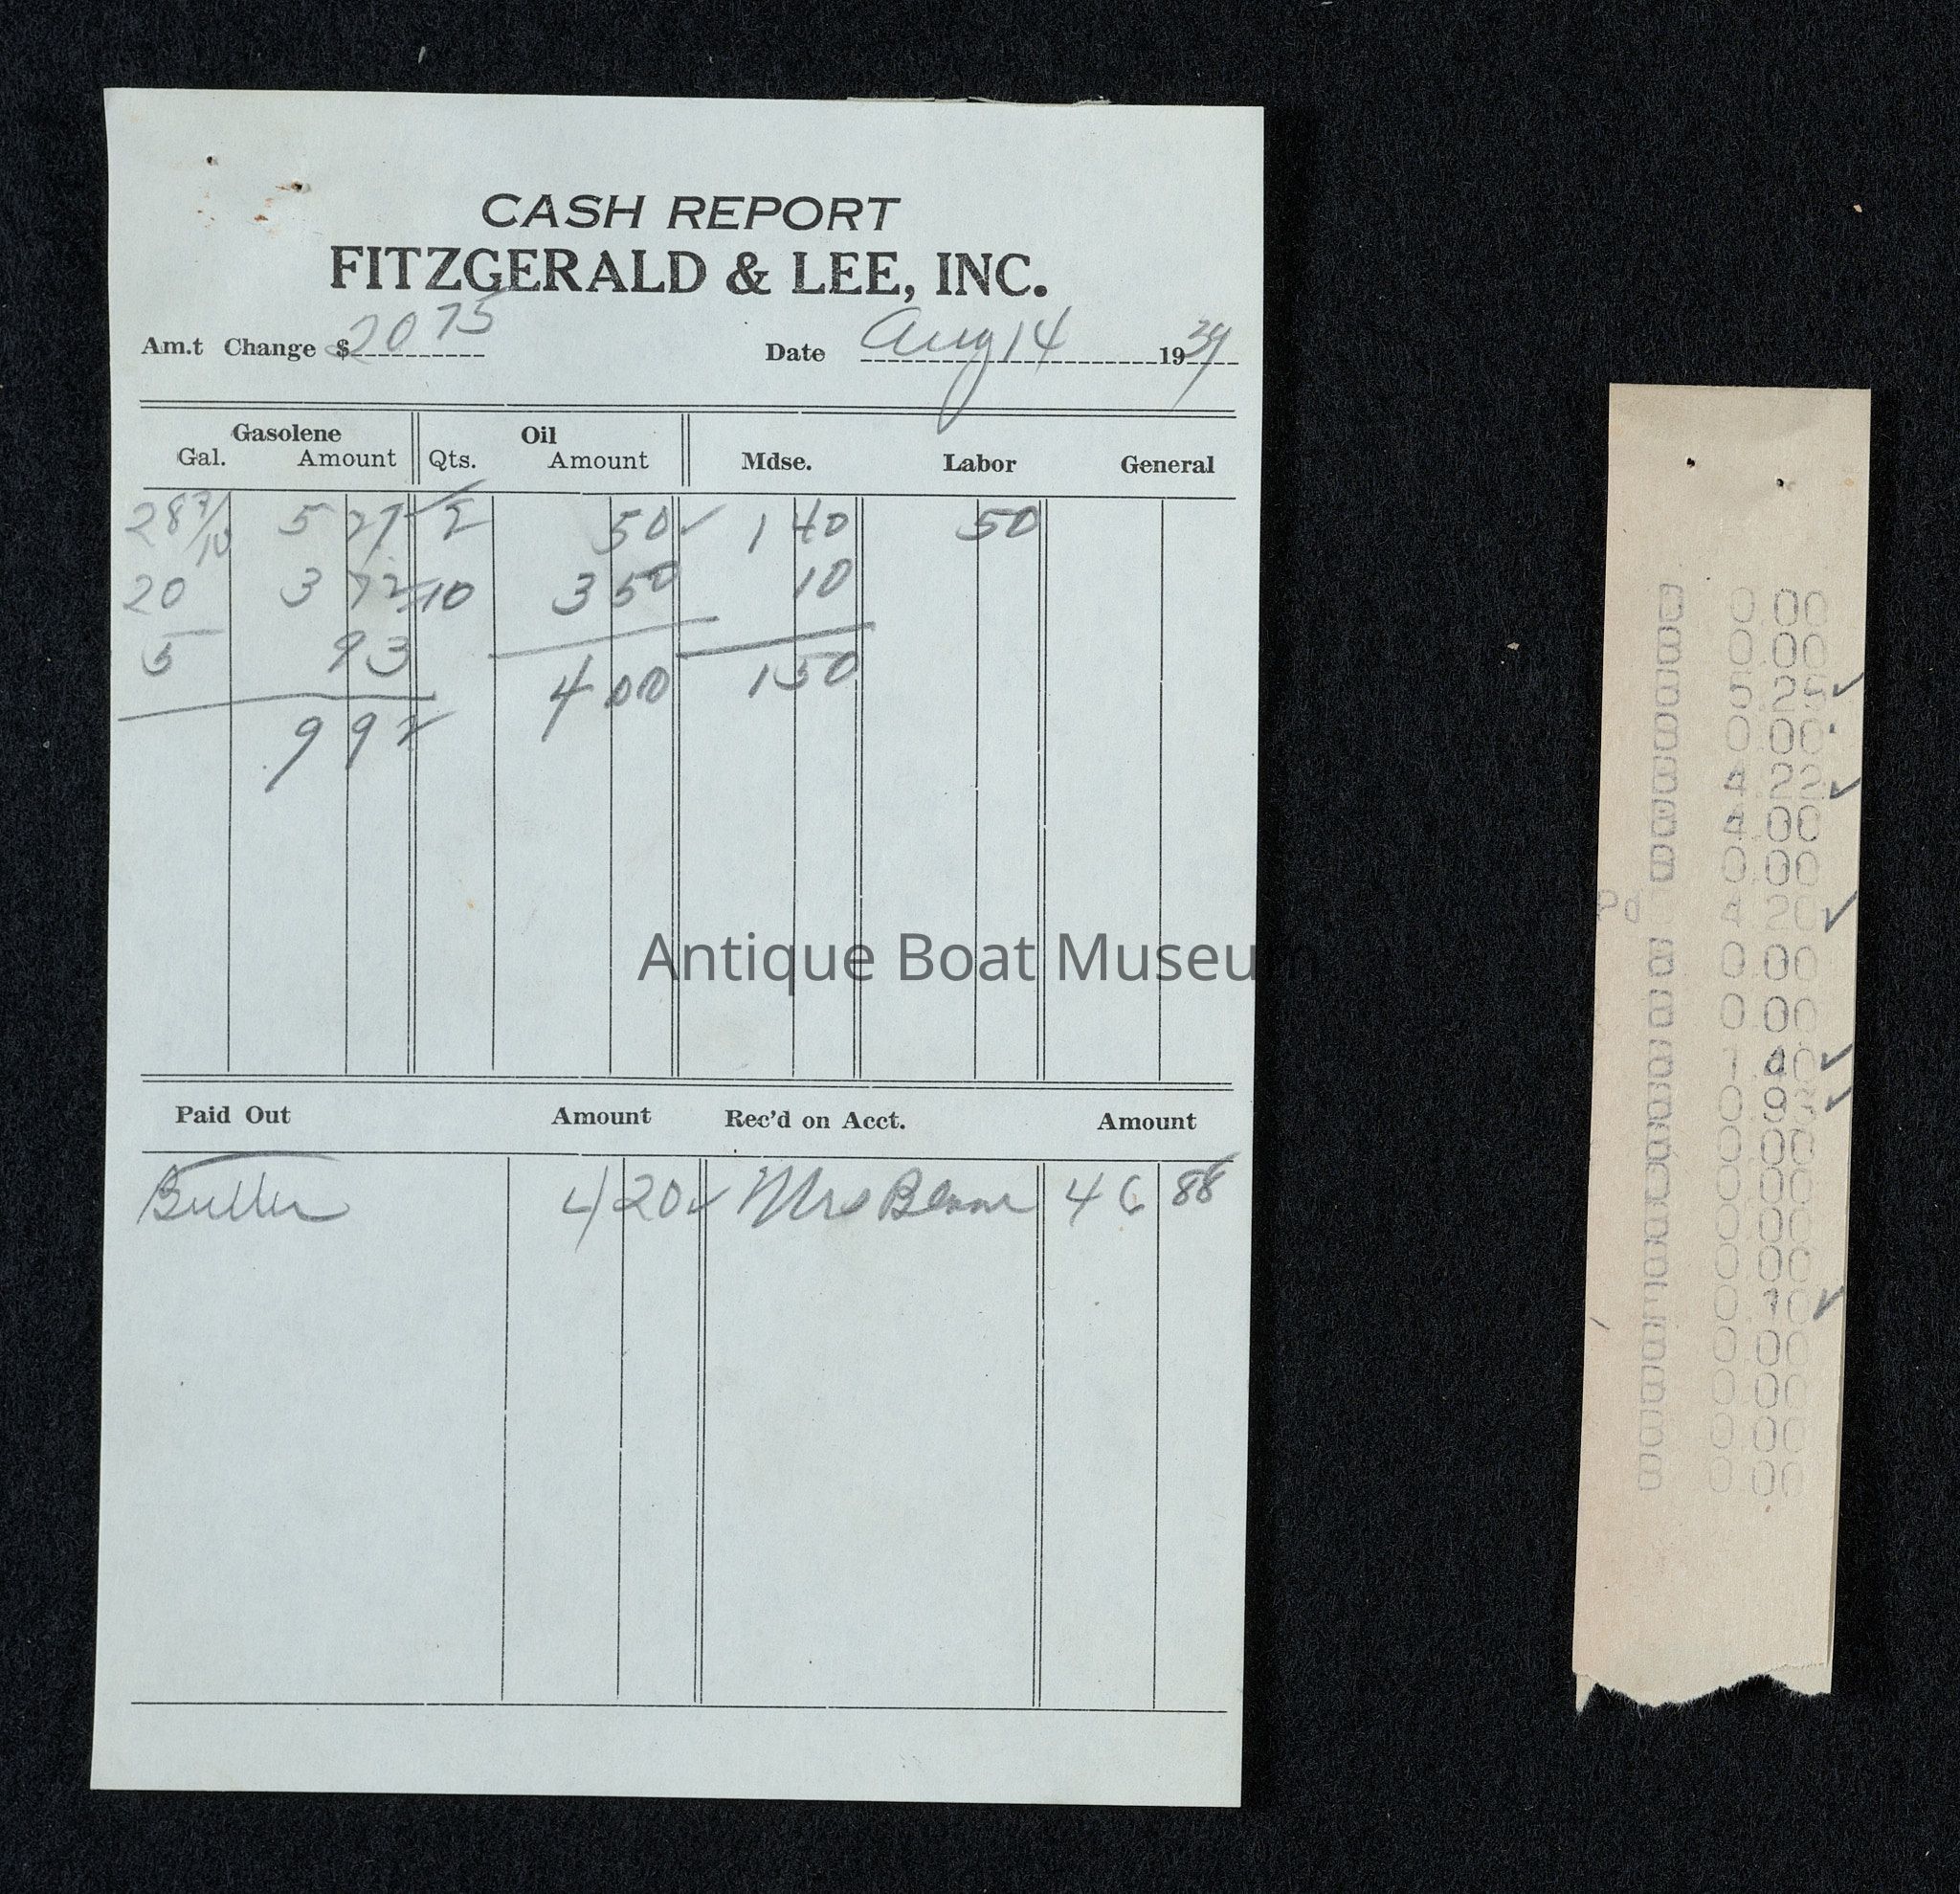 CASH REPORT
FITZGERALD & LEE, INC.
Am.t Change $ 20 75 Date Aug 14 1934
Gasolene Oil
Gal. Amount Qts. Amount Mdse. Labor General
28 3/10 5 27 2 50 ✓ 1 40 50
20 3 72 10 3 50 10
5 93 4 00 1 50
9 92
Antique Boat Museum
Paid Out Amount Rec'd on Acct. Amount
Butler 4 20 ✓ Mrs 46 88
0.00
0.00
5.25 ✓
0.00
4.22 ✓
4.00
0.00
Pd 4.20 ✓
0.00
0.00
1.40 ✓
0.93 ✓
0.00
0.00
0.00
0.00
0.10 ✓
0.00
0.00
0.00
0.00